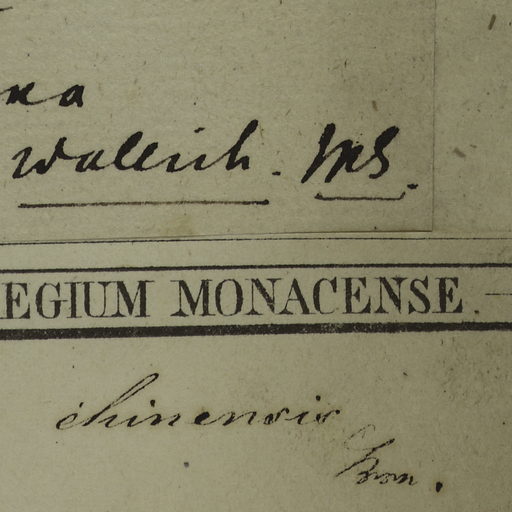 ka
Wallich. MS.
EGIUM MONACENSE.
chinensis